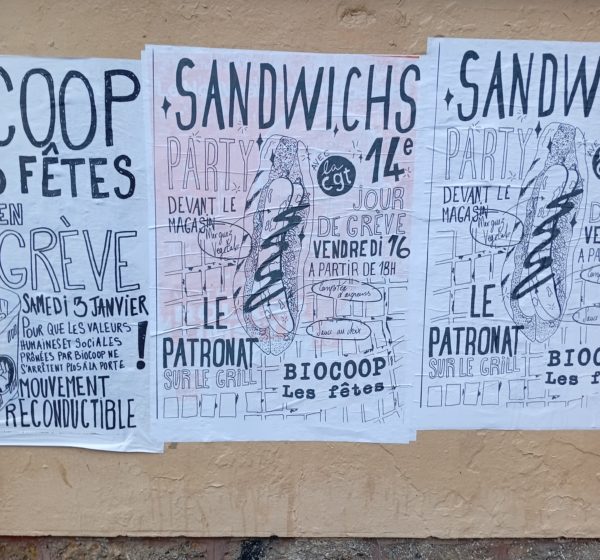 COOP
FÊTES
EN
GRÈVE
SAMEDI 3 JANVIER
POUR QUE LES VALEURS
HUMAINES ET SOCIALES
PRÔNÉES PAR BIOCOOP NE
S'ARRÊTENT PLUS À LA PORTE
!
MOUVEMENT
RECONDUCTIBLE
SANDWICHS
PARTY
AVEC
la
cgt
14e
JOUR
DE GRÈVE
DEVANT LE
MAGASIN
VENDREDI 16
A PARTIR DE 18H
LE
PATRONAT
SUR LE GRILL
BIOCOOP
Les fêtes
SANDW
PARTY
DEVANT LE
MAGASIN
DE
VEN
A P
LE
PATRONAT
SUR LE GRILL
BIOCOO
Les f